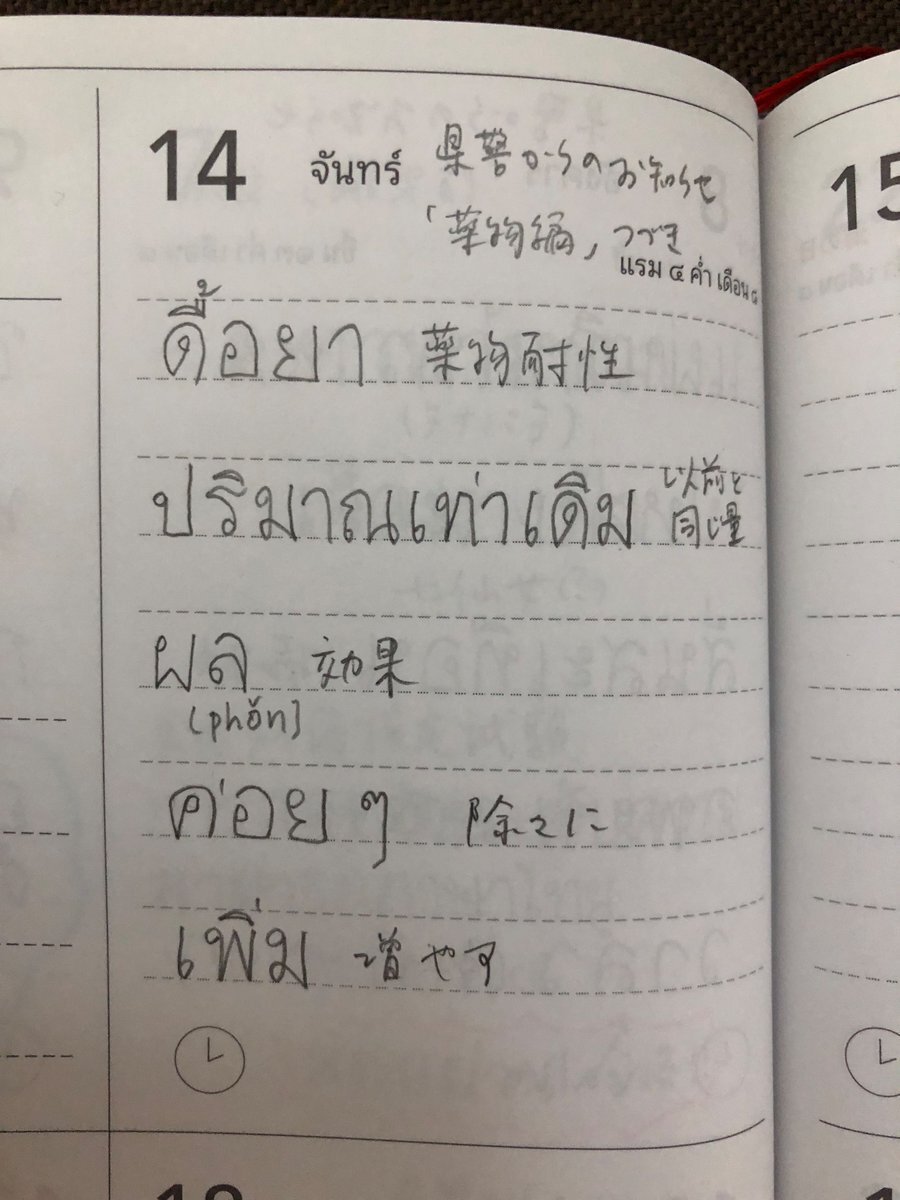 14 จันทร์ 県警からのお知らせ
「薬物編」つづき
แรม ๔ ค่ำ เดือน ๘
ดื้อยา 薬物耐性
ปริมาณเท่าเดิม 以前と
同量
ผล 効果
[phǒn]
ค่อย ๆ 除々に
เพิ่ม 増やす
15